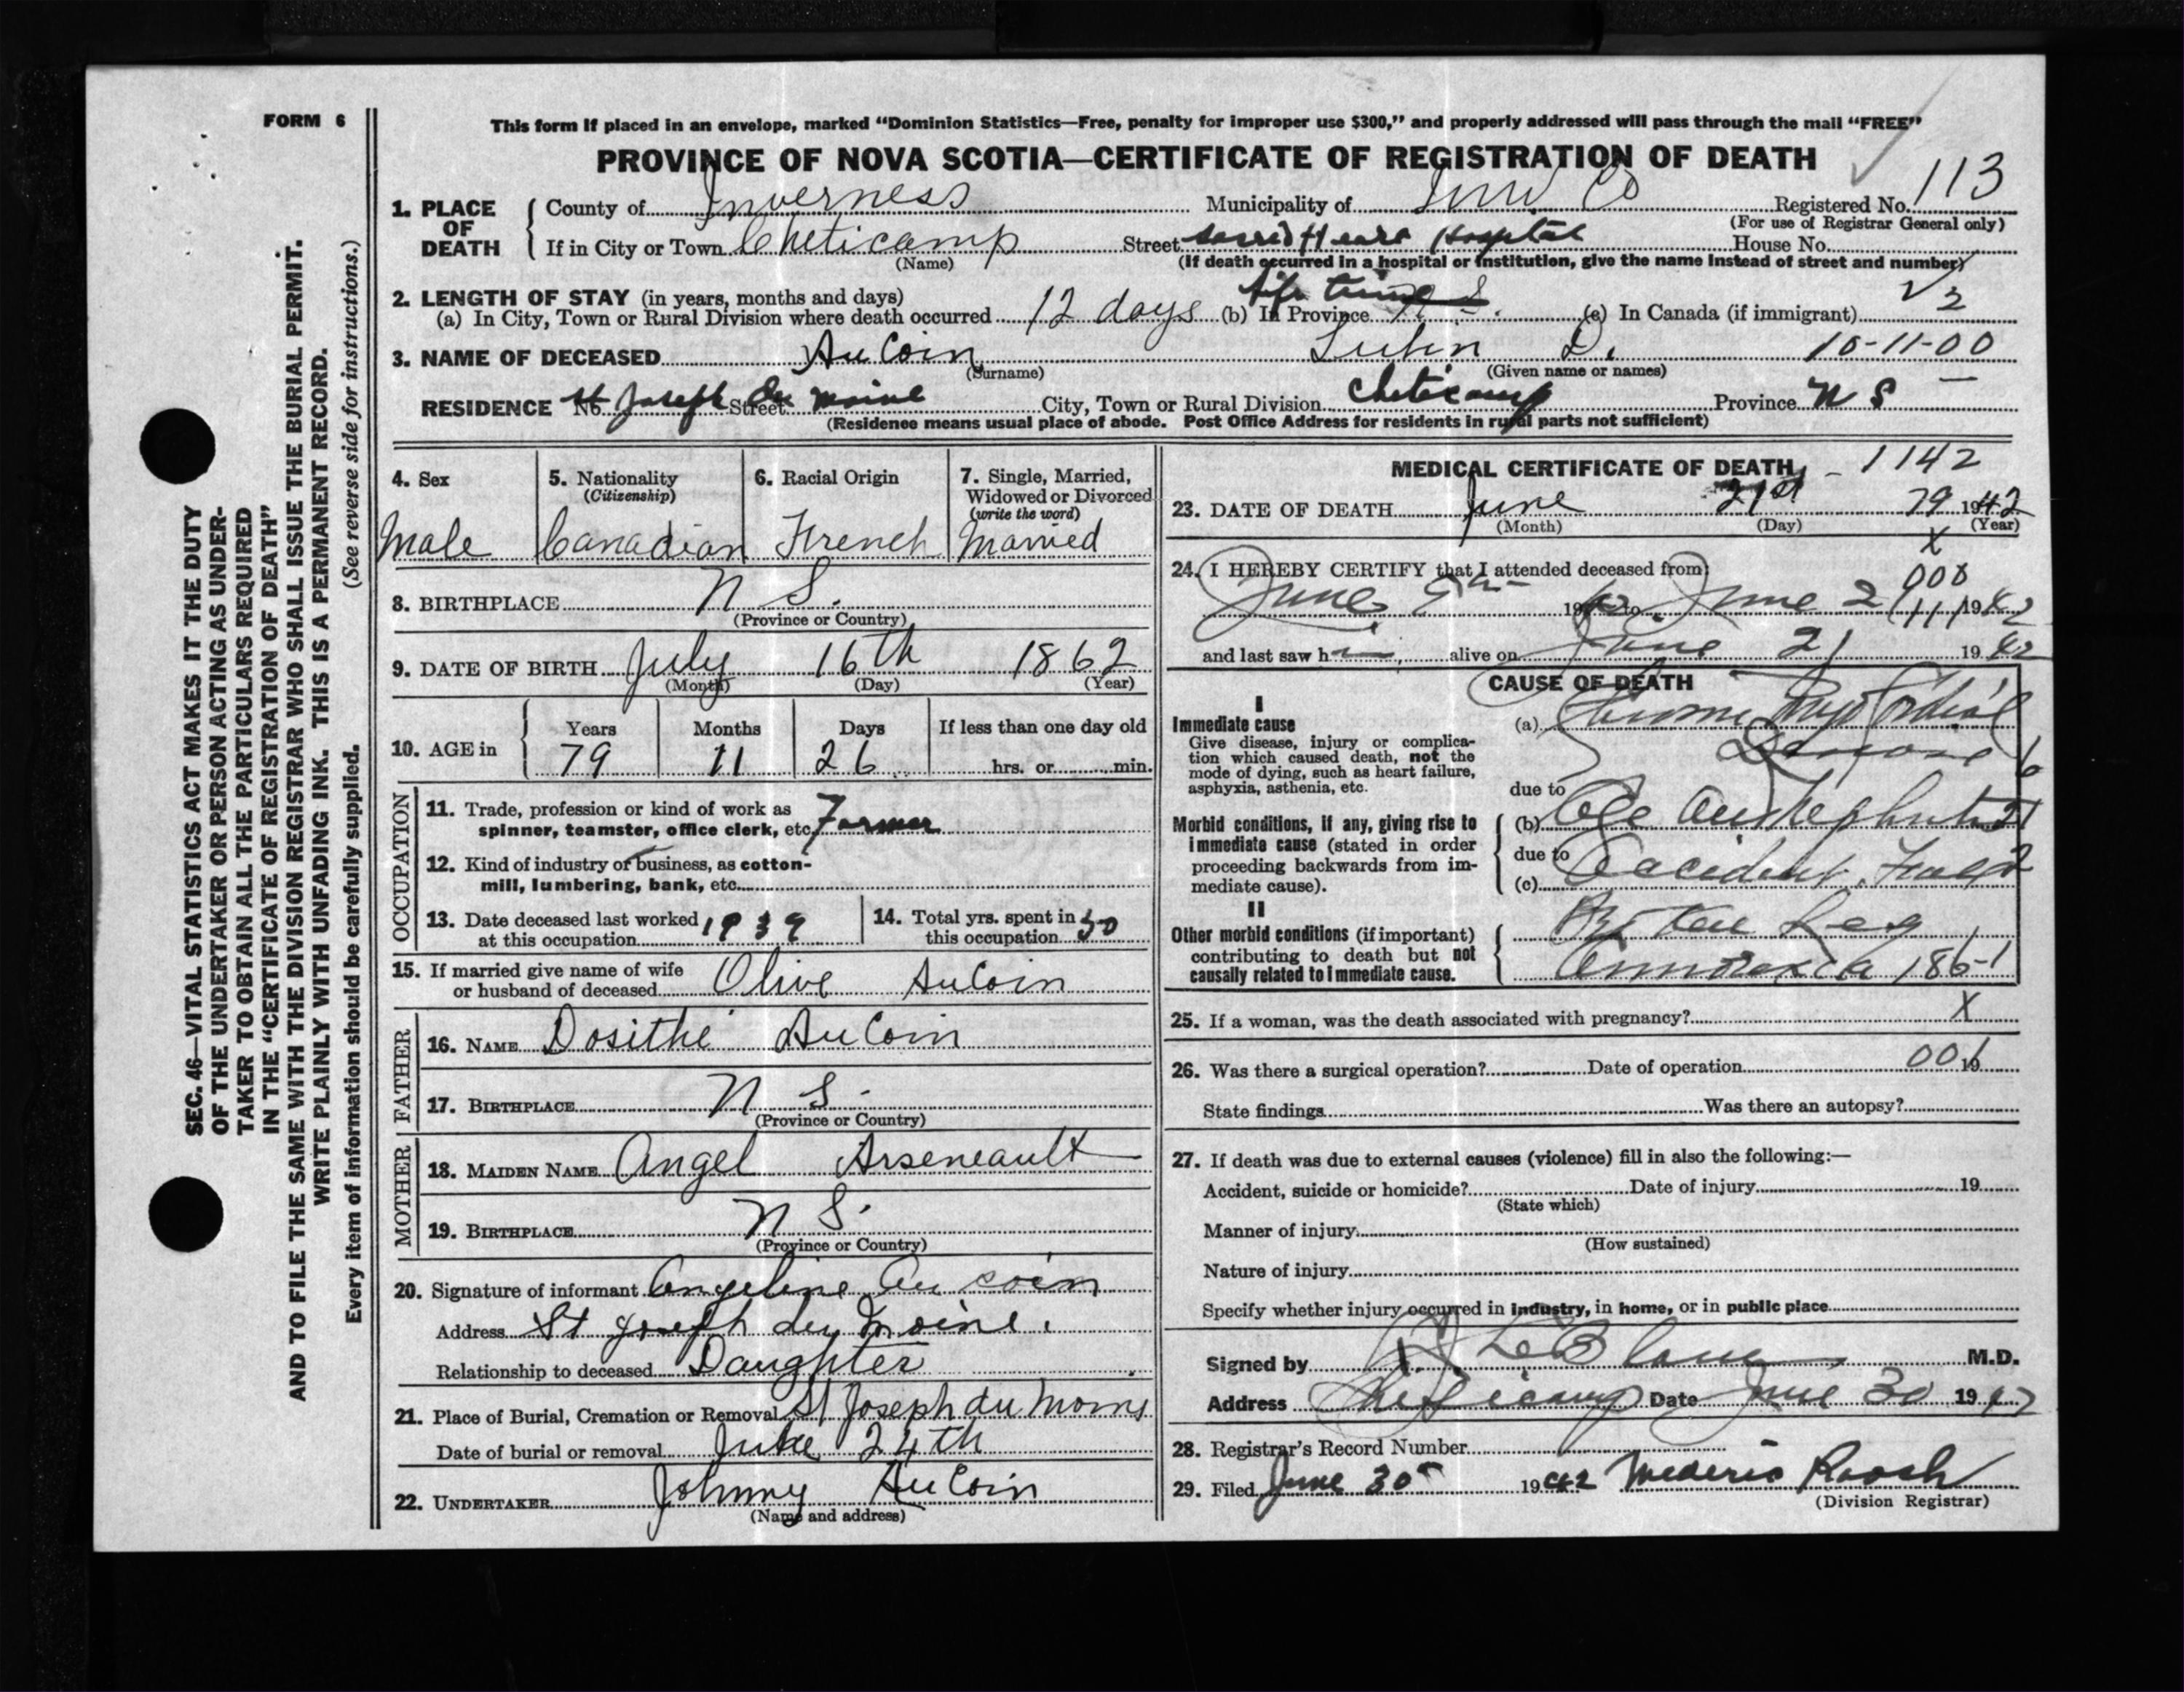 FORM 6
This form if placed in an envelope, marked “Dominion Statistics—Free, penalty for improper use $300,” and properly addressed will pass through the mail “FREE”
PROVINCE OF NOVA SCOTIA—CERTIFICATE OF REGISTRATION OF DEATH
SEC. 46—VITAL STATISTICS ACT MAKES IT THE DUTY
OF THE UNDERTAKER OR PERSON ACTING AS UNDER-
TAKER TO OBTAIN ALL THE PARTICULARS REQUIRED
IN THE “CERTIFICATE OF REGISTRATION OF DEATH”
AND TO FILE THE SAME WITH THE DIVISION REGISTRAR WHO SHALL ISSUE THE BURIAL PERMIT.
WRITE PLAINLY WITH UNFADING INK. THIS IS A PERMANENT RECORD.
Every item of information should be carefully supplied. (See reverse side for instructions.)
1. PLACE OF DEATH County of Inverness Municipality of Inv. Co Registered No. 113
(For use of Registrar General only)
If in City or Town Cheticamp Street Sacred Heart Hospital House No.
(Name) (If death occurred in a hospital or institution, give the name instead of street and number)
2. LENGTH OF STAY (in years, months and days) life time
(a) In City, Town or Rural Division where death occurred 12 days (b) In Province N S. (c) In Canada (if immigrant)
3. NAME OF DECEASED AuCoin D. 10-11-00
(Surname) (Given name or names)
RESIDENCE No. St Joseph Street du Moine City, Town or Rural Division Cheticamp Province N S
(Residence means usual place of abode. Post Office Address for residents in rural parts not sufficient)
4. Sex Male
5. Nationality (Citizenship) Canadian
6. Racial Origin French
7. Single, Married, Widowed or Divorced (write the word) Married
8. BIRTHPLACE N S.
(Province or Country)
9. DATE OF BIRTH July 16th 1862
(Month) (Day) (Year)
10. AGE in Years 79 Months 11 Days 26 If less than one day old hrs. or min.
OCCUPATION
11. Trade, profession or kind of work as
spinner, teamster, office clerk, etc. Farmer
12. Kind of industry or business, as cotton-
mill, lumbering, bank, etc.
13. Date deceased last worked at this occupation 1939
14. Total yrs. spent in this occupation 50
15. If married give name of wife
or husband of deceased Olive AuCoin
FATHER
16. NAME Dosithé AuCoin
17. BIRTHPLACE N S.
(Province or Country)
MOTHER
18. MAIDEN NAME Angel Arseneault
19. BIRTHPLACE N S.
(Province or Country)
20. Signature of informant Angeline Aucoin
Address St Joseph du Moine.
Relationship to deceased Daughter
21. Place of Burial, Cremation or Removal St Joseph du
Date of burial or removal June 24th
22. UNDERTAKER Johnny AuCoin
(Name and address)
MEDICAL CERTIFICATE OF DEATH 1142
23. DATE OF DEATH June 21st 79 1942
(Month) (Day) (Year)
X
24. I HEREBY CERTIFY that I attended deceased from
000
June 9th 1942 to June 21 1942
and last saw h alive on June 21 1942
CAUSE OF DEATH
I
Immediate cause
Give disease, injury or complica-
tion which caused death, not the
mode of dying, such as heart failure,
asphyxia, asthenia, etc.
(a) Chronic Myocordial
due to
Morbid conditions, if any, giving rise to
immediate cause (stated in order
proceeding backwards from im-
mediate cause).
(b)
due to
(c) Accident
II
Other morbid conditions (if important)
contributing to death but not
causally related to immediate cause.
Leg
186-1
25. If a woman, was the death associated with pregnancy? X
26. Was there a surgical operation? Date of operation 001 19
State findings Was there an autopsy?
27. If death was due to external causes (violence) fill in also the following:—
Accident, suicide or homicide? Date of injury 19
(State which)
Manner of injury
(How sustained)
Nature of injury
Specify whether injury occurred in industry, in home, or in public place
Signed by LeBlanc M.D.
Address Cheticamp Date June 30 1942
28. Registrar's Record Number
29. Filed June 30 1942 Mederic Roach
(Division Registrar)